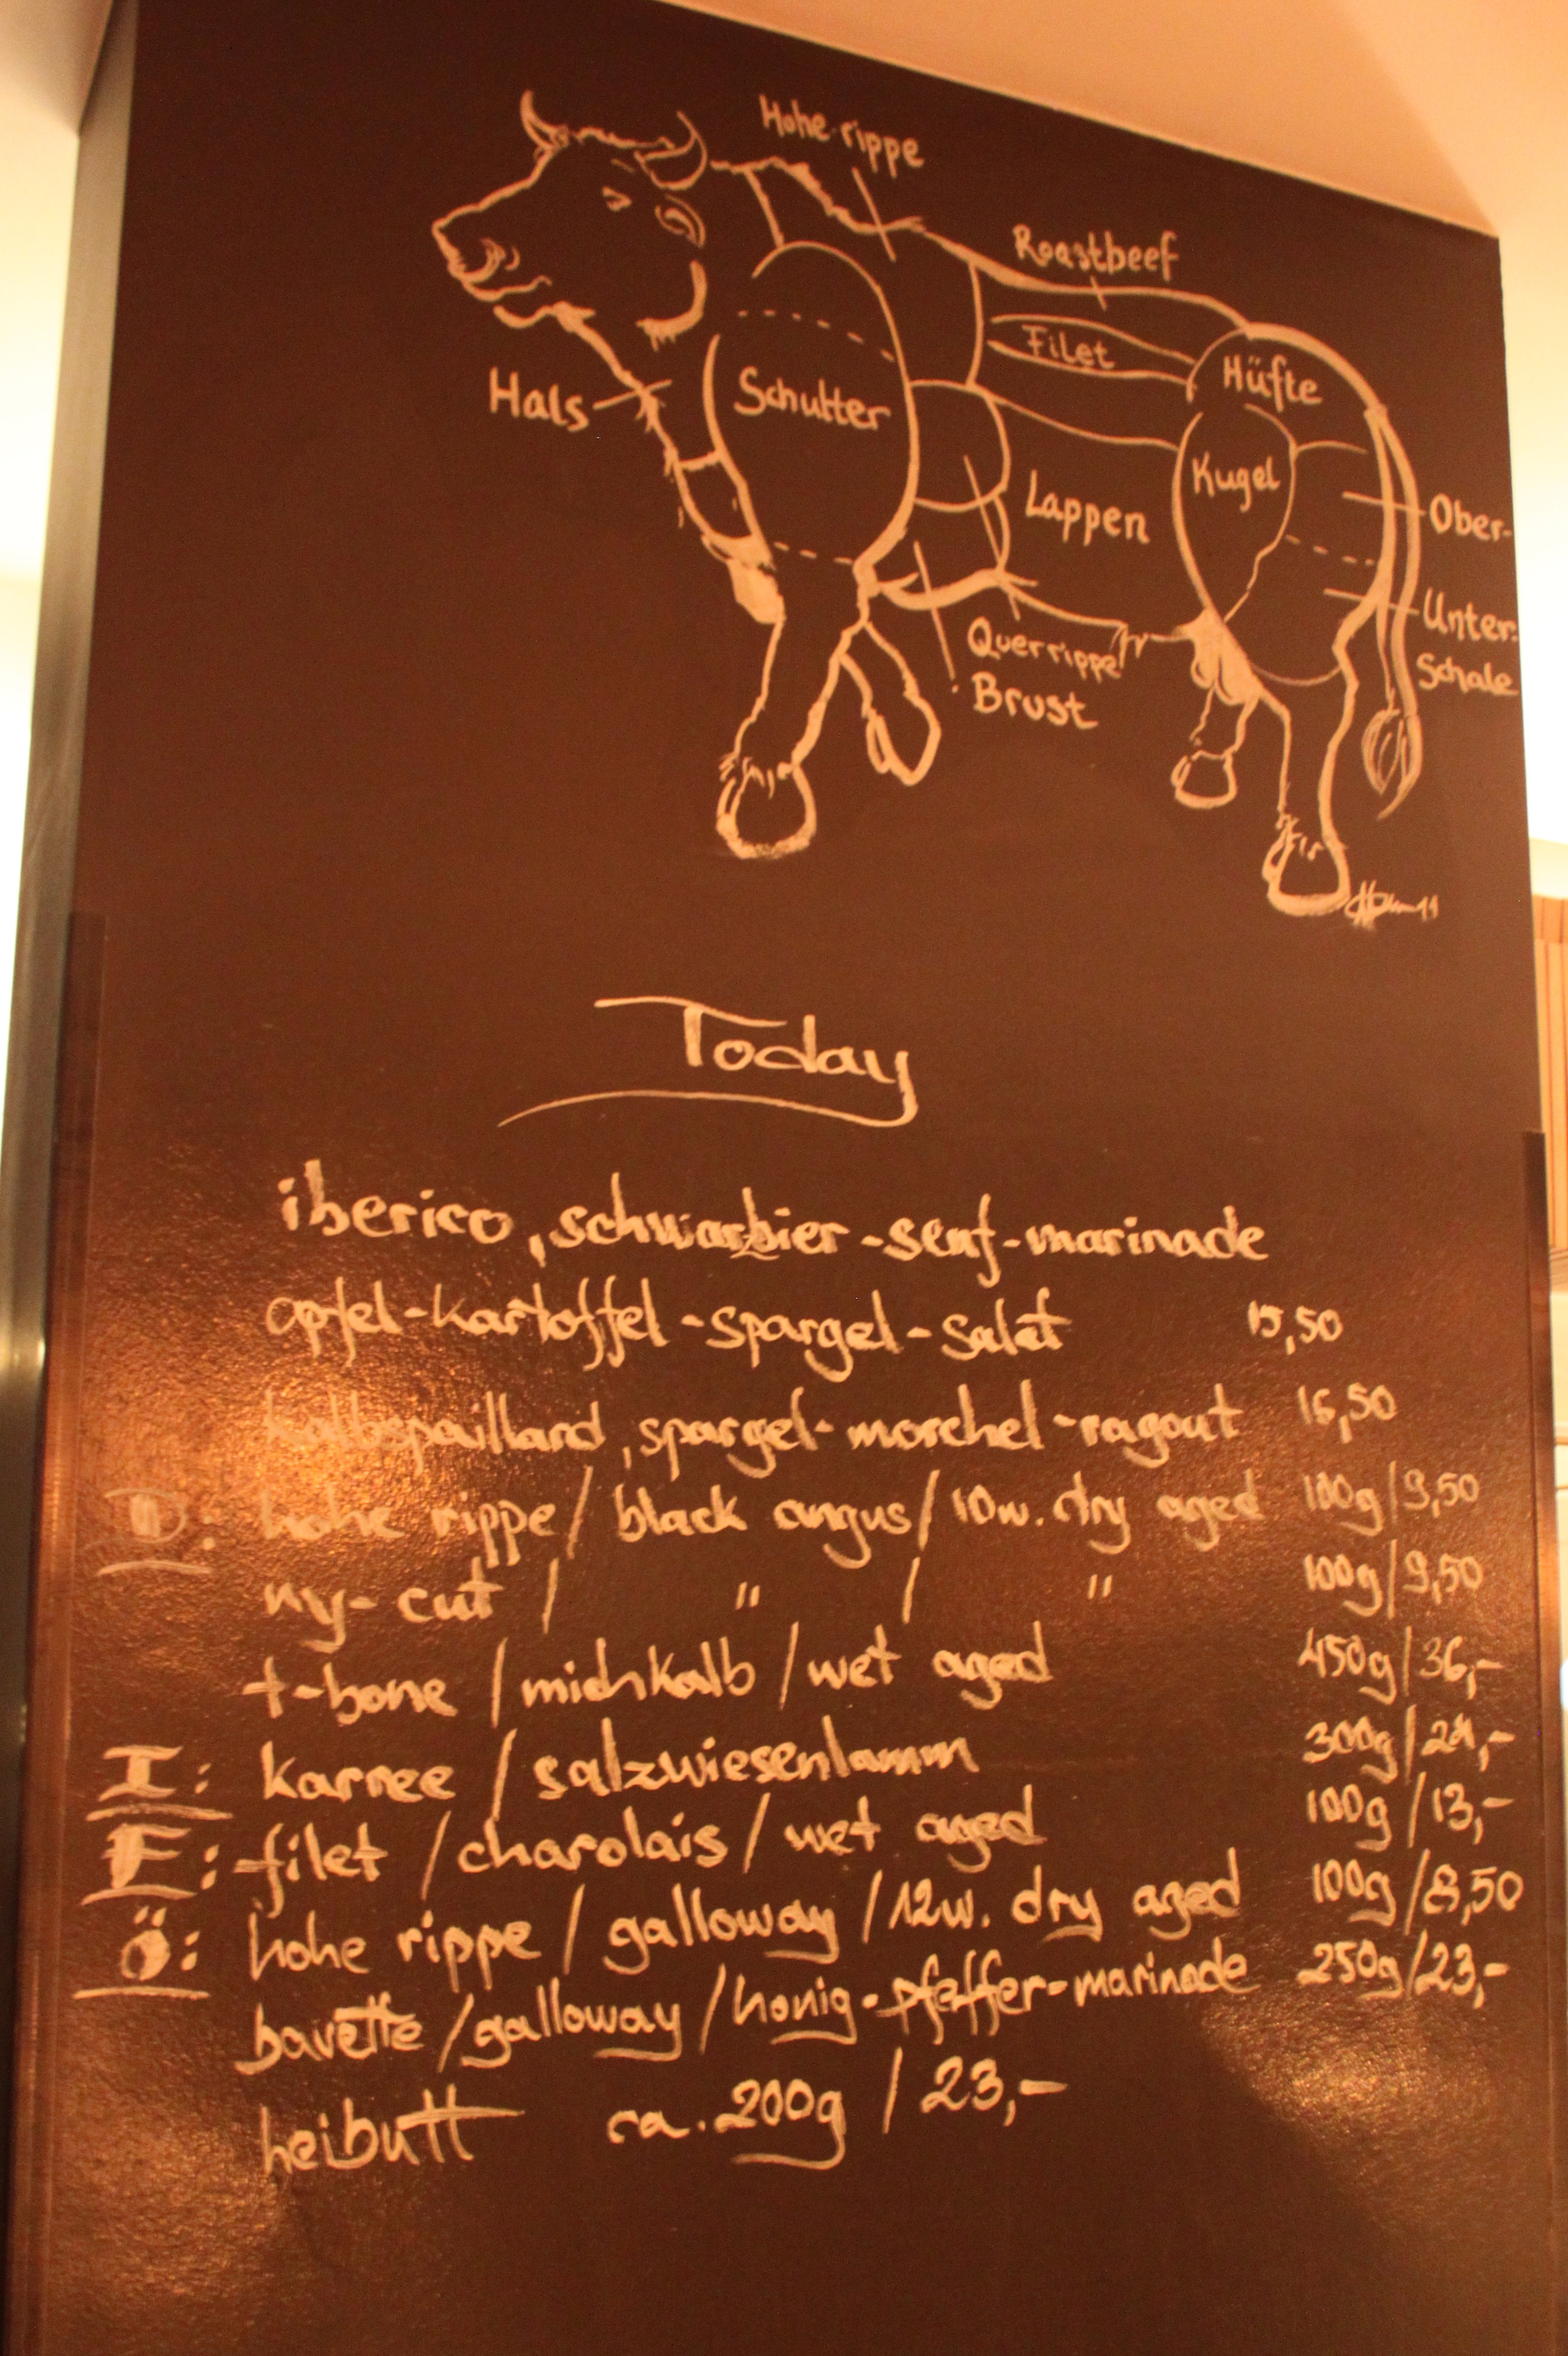 Hohe rippe
Roastbeef
Filet
Hüfte
Hals
Schulter
Kugel
Lappen
Ober-
Unter-
Schale
Querrippe
Brust
Today
iberico, schwarzbier-senf-marinade
apfel-kartoffel-spargel-salat 15,50
kalbspaillard, spargel-morchel-ragout 16,50
D: hohe rippe / black angus / 10w. dry aged 100g/9,50
ny-cut / " / " 100g/9,50
t-bone / michkalb / wet aged 450g/36,-
I: karree / salzwiesenlamm 300g/24,-
F: filet / charolais / wet aged 100g/13,-
Ö: hohe rippe / galloway / 12w. dry aged 100g/8,50
bavette / galloway / honig-pfeffer-marinade 250g/23,-
heibutt ca. 200g / 23,-